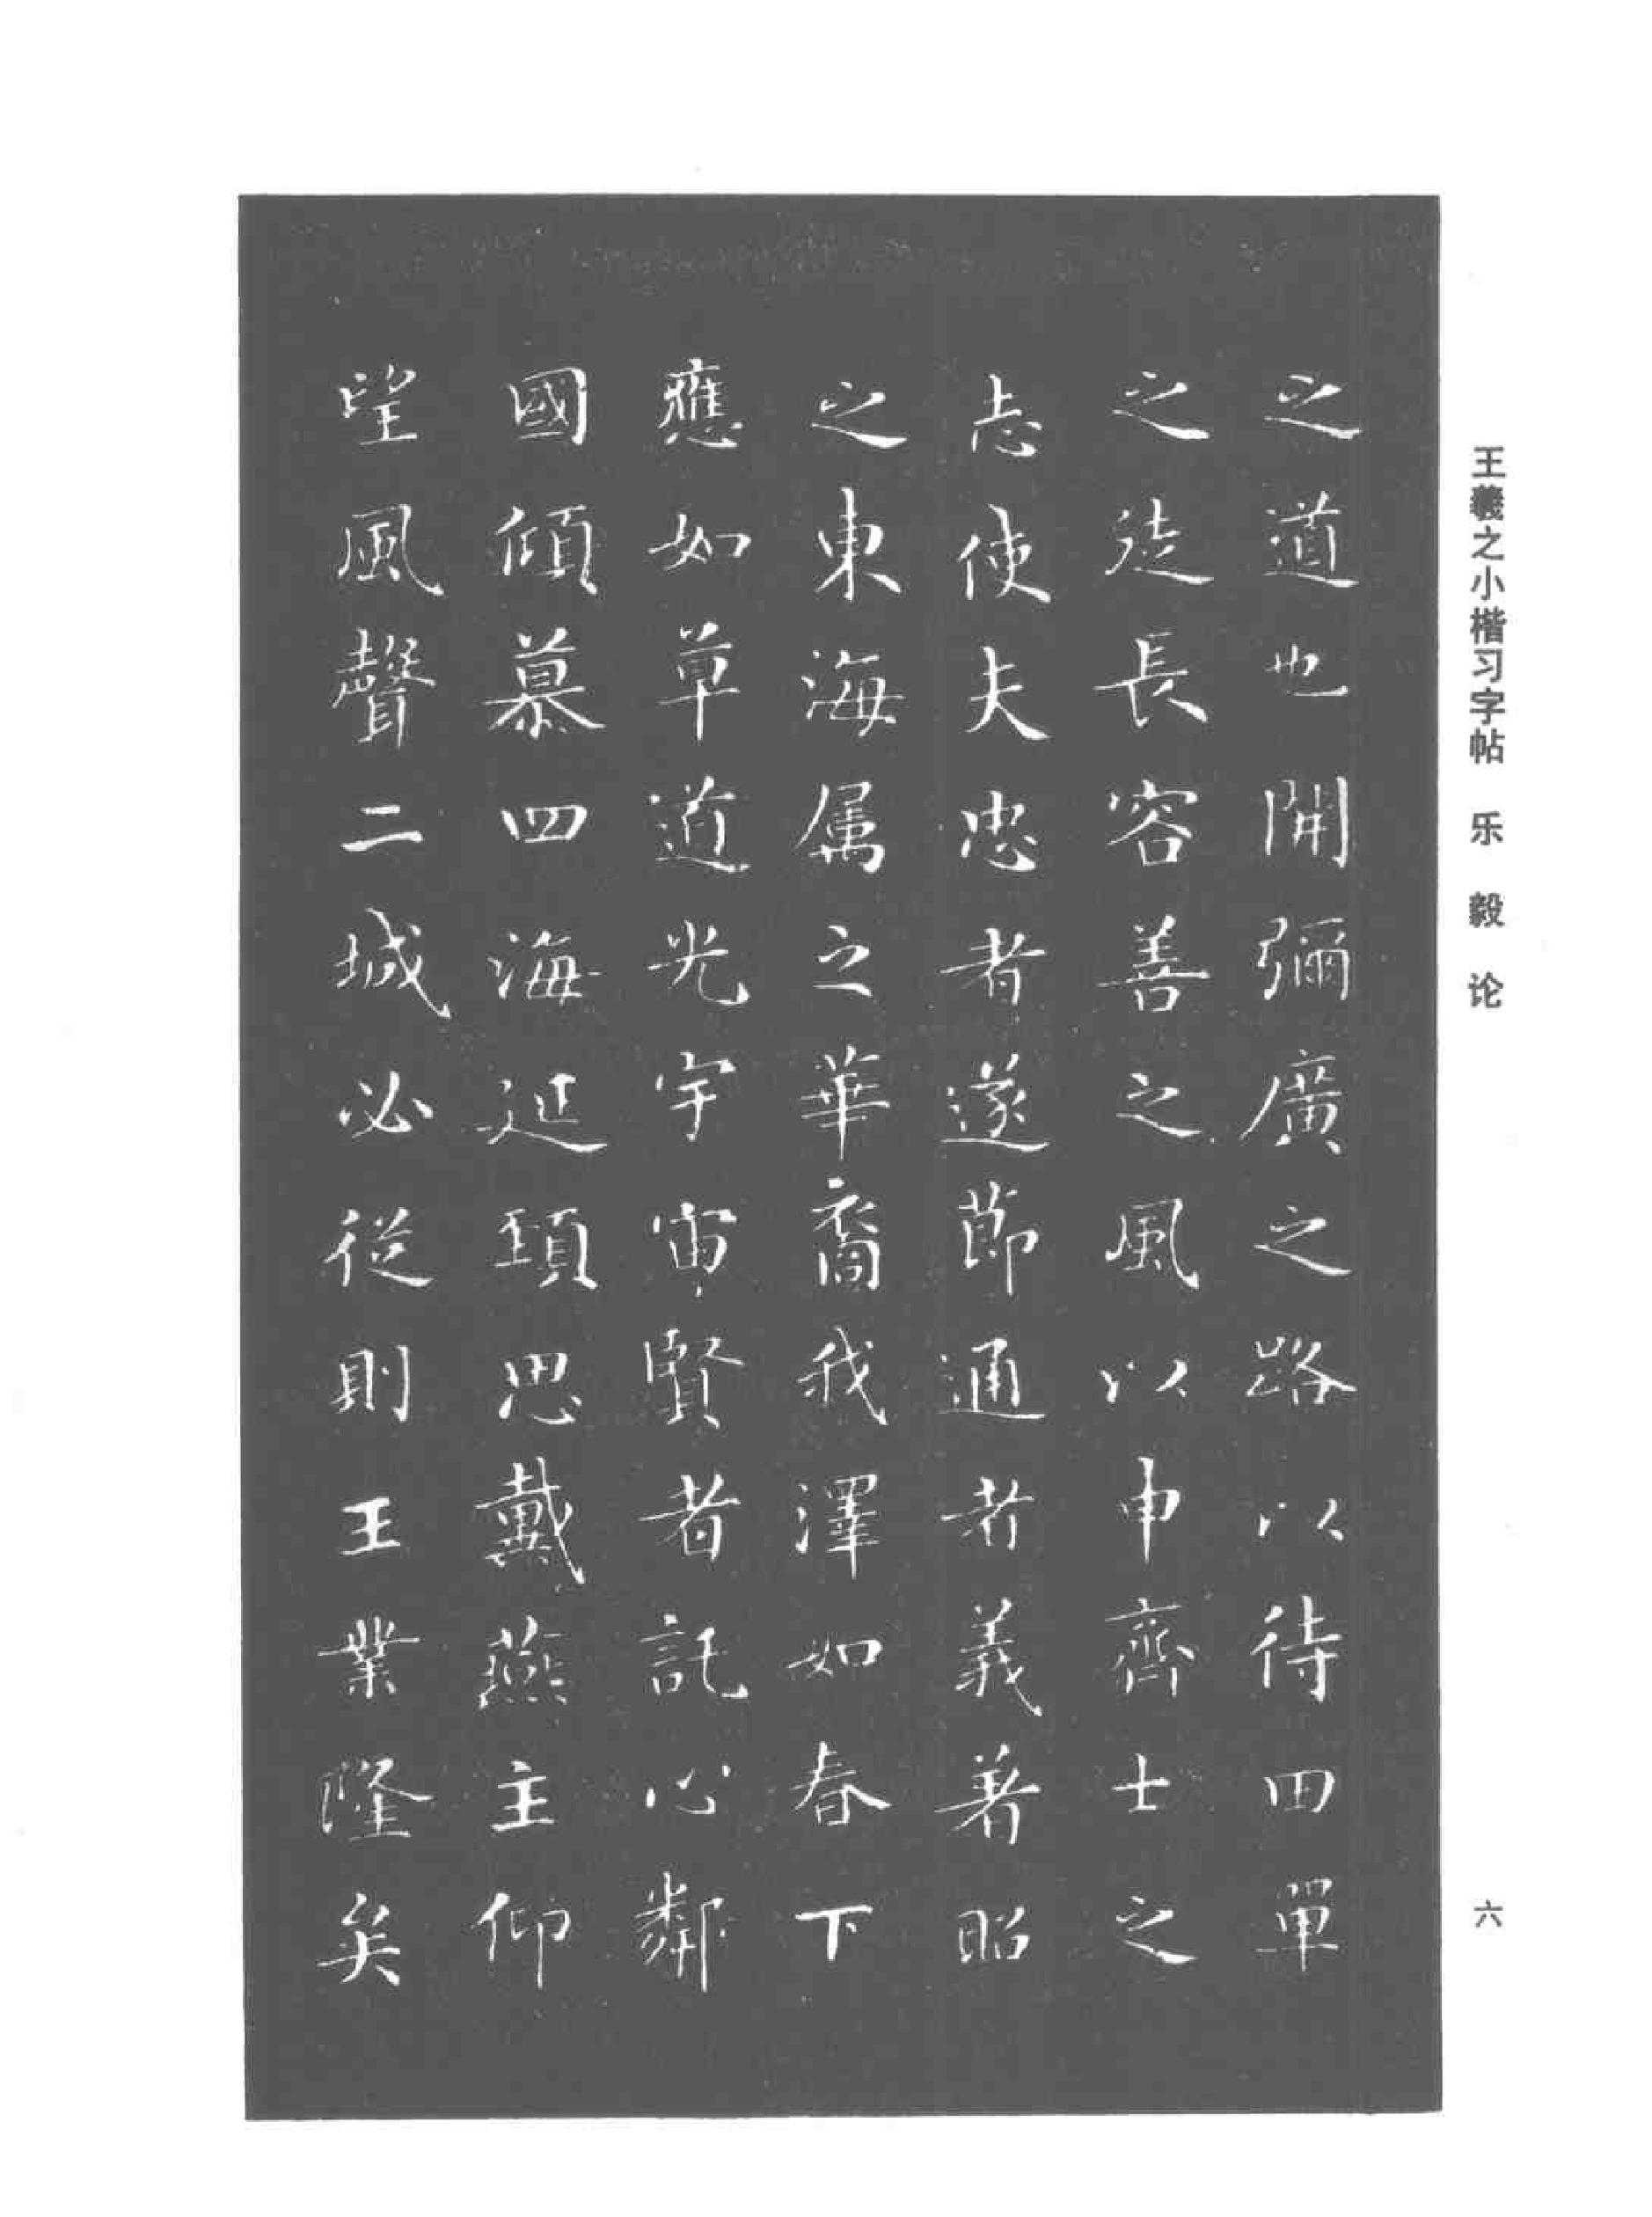 王羲之小楷习字帖 乐毅论
之道也開彌廣之路以待田單
之徒長容善之風以申齊士之
志使夫忠者遂節通者義著昭
之東海属之華裔我澤如春下
應如草道光宇宙賢者託心鄰
國傾慕四海延頸思戴燕主仰
望風聲二城必從則王業隆矣
六